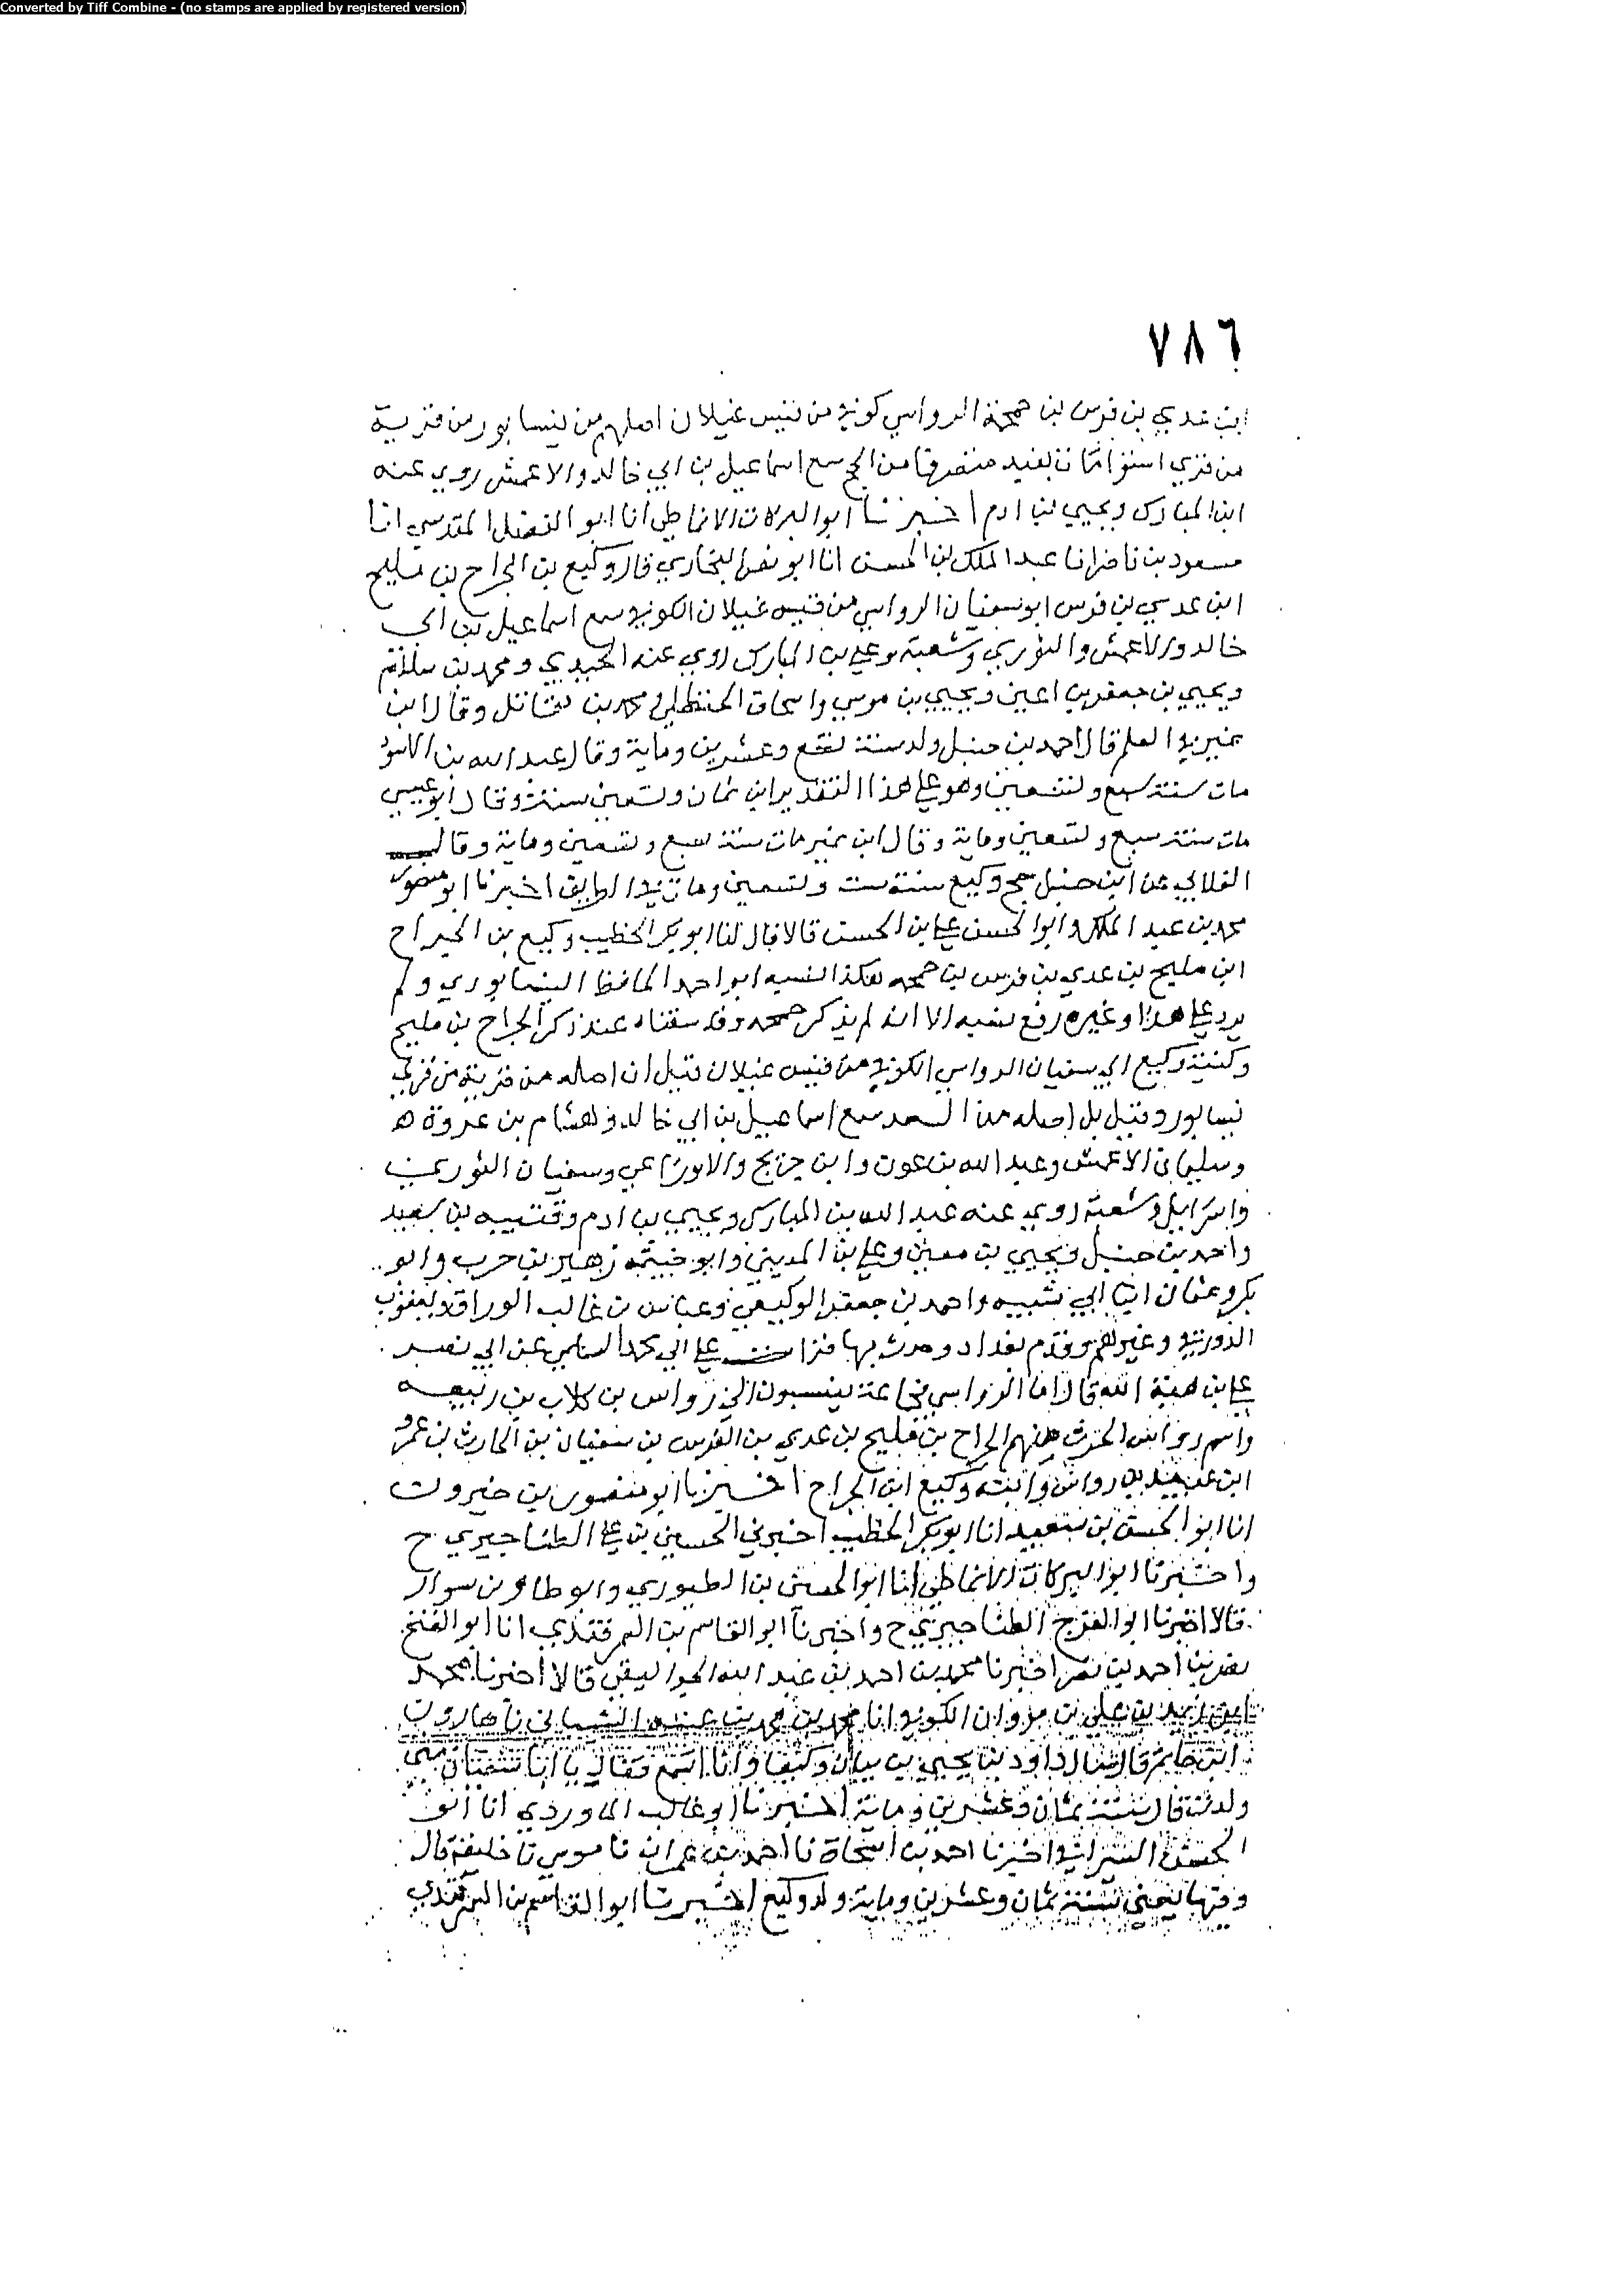 Converted by Tiff Combine - (no stamps are applied by registered version)
٧٨٦
ابن عدي بن فرس بن جمجمة الرواسي كوفي من قيس عيلان اصلهم من نيسابور من قرية
من قري استوا مات بفيد منصرفا من الحج سمع اسماعيل بن ابي خالد والاعمش روي عنه
ابن المبارك ويحيي بن ادم اخبرنا ابو البركات الانماطي انا ابو الفضل المقدسي انا
مسعود بن ناصر انا عبد الملك بن الحسن انا ابو نصر البخاري قال وكيع بن الجراح بن مليح
ابن عدي بن فرس ابو سفيان الرواسي من قيس عيلان الكوفي سمع اسماعيل بن ابي
خالد والاعمش والثوري وشعبة وعلي بن المبارك روي عنه الحميدي ومحمد بن سلام
ويحيي بن جعفر بن اعين ويحيي بن موسي واسحاق الحنظلي ومحمد بن مقاتل وقال ابن
نمير في العلم قال احمد بن حنبل ولد سنة تسع وعشرين وماية وقال عبد الله بن الاسود
مات سنة سبع وتسعين وهو علي هذا التقدير ابن ثمان وستين سنة وقال ابو عيسي
مات سنة سبع وتسعين وماية وقال ابن نمير مات سنة سبع وتسعين وماية وقال
الغلابي عن ابن حنبل حج وكيع سنة ست وتسعين ومات في الطريق اخبرنا ابو منصور
محمد بن عبد الملك وابو الحسن علي بن الحسن قالا قال لنا ابو بكر الخطيب وكيع بن الجراح
ابن مليح بن عدي بن فرس بن جمجمه هكذا نسبه ابو احمد الحافظ النيسابوري ولم
يزد علي هذا وغيره رفع نسبه الا انه لم يذكر جمجمه وقد سقناه عند ذكر الجراح بن مليح
وكنية وكيع ابي سفيان الرواسي الكوفي من قيس عيلان قيل ان اصله من قرية من قري
نيسابور وقيل بل اصله من السغد سمع اسماعيل بن ابي خالد وهشام بن عروة
وسليمان الاعمش وعبد الله بن عون وابن جريج والاوزاعي وسفيان الثوري
واسرايل وشعبة روي عنه عبد الله بن المبارك ويحيي بن ادم وقتيبه بن سعيد
واحمد بن حنبل ويحيي بن معين وعلي بن المديني وابو خيثمه زهير بن حرب وابو
بكر وعثمان ابنا ابي شيبه واحمد بن جعفر الوكيعي وعباس بن غالب الوراق ويعقوب
الدورقي وغيرهم وقدم بغداد وحدث بها قرات علي ابي محمد السلمي عن ابي نصر
علي بن هبة الله قال اما الرواسي فجماعة ينسبون الي رواس بن كلاب بن ربيعه
واسم رواس الحرث منهم الجراح بن مليح بن عدي بن الفرس بن سفيان بن الحارث بن عمرو
ابن عبيد بن رواس وابنه وكيع ابن الجراح اخبرنا ابو منصور بن خيرون
انا ابو الحسن بن سعيد انا ابو بكر الخطيب اخبرني الحسين بن علي الطناجيري ح
واخبرنا ابو البركات الانماطي انا ابو الحسين بن الطيوري وابو طاهر بن سوار
قالا اخبرنا ابو الفرج الطناجيري ح واخبرنا ابو القاسم بن السمرقندي انا ابو الفتح
نصر بن احمد بن نصر اخبرنا محمد بن احمد بن عبد الله الجواليقي قالا اخبرنا محمد
ابن زيد بن علي بن مروان الكوفي انا محمد بن محمد بن عقبه الشيباني نا هارون
ابن حاتم قال سال داود بن يحيي بن يمان وكيعا وانا اسمع فقال يا ابا سفيان متي
ولدت قال سنة ثمان وعشرين وماية اخبرنا ابو غالب الماوردي انا ابو
الحسن السيرافي اخبرنا احمد بن اسحاق نا احمد بن عمران نا موسي نا خليفة قال
وفيها يعني سنة ثمان وعشرين وماية ولد وكيع اخبرنا ابو القاسم بن السمرقندي